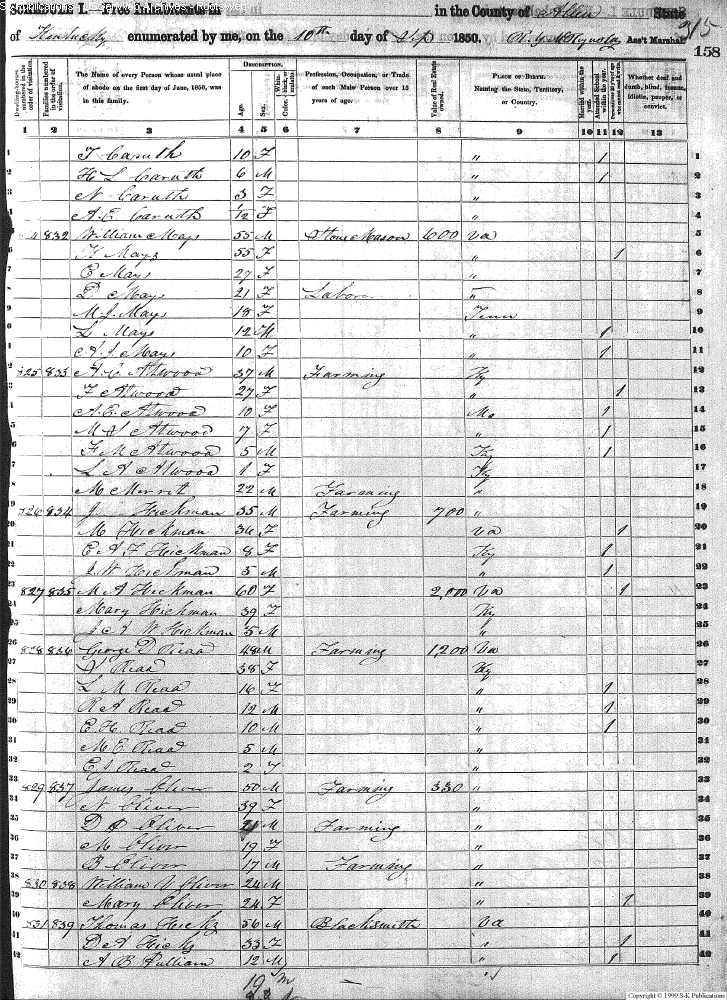 SCHEDULE I.—Free Inhabitants in in the County of Allen State
of Kentucky enumerated by me, on the 10th day of Sep 1850. Ass't Marshal. 315
158
Dwelling-houses numbered in the order of visitation. Families numbered in the order of visitation. The Name of every Person whose usual place of abode on the first day of June, 1850, was in this family. DESCRIPTION. Age. Sex. Color, White, black, or mulatto. Profession, Occupation, or Trade of each Male Person over 15 years of age. Value of Real Estate owned. PLACE OF BIRTH. Naming the State, Territory, or Country. Married within the year. Attended School within the year. Whether deaf and dumb, blind, insane, idiotic, pauper, or convict.
1 2 3 4 5 6 7 8 9 10 11 12 13
1 T Caruth 10 F " 1 1
2 H L Caruth 6 M " 1 2
3 N Caruth 3 F " 3
4 A. E. Caruth 1/12 F " 4
5 832 William Mays 55 M Stone Mason 600 Va 5
6 Mays 55 F " 1 6
7 E Mays 27 F " 7
8 Mays 21 F Labor 8
9 M. J. Mays 18 F Tenn 9
10 L Mays 12 M " 1 10
11 A J Mays 10 F " 1 11
12 825 833 Atwood 37 M Farming Ky 12
13 F Atwood 27 F " 1 13
14 A. E. Atwood 10 F Mo 1 14
15 M Atwood 7 F " 1 15
16 F M Atwood 5 M Ky 1 16
17 L A Atwood 1 F Ky 17
18 M Merrit 22 M Farming " 18
19 826 834 J Hickman 35 M Farming 700 " 19
20 M Hickman 36 F Va 1 20
21 E A F Hickman 8 F Ky 1 21
22 J. W. Hickman 5 M " 1 22
23 827 835 M A Hickman 60 F 2,000 Va 1 23
24 Mary Hickman 39 F Ky 24
25 Hickman 5 M " 25
26 828 836 George D Read 48 M Farming 1,200 Va 26
27 Read 38 F Ky 27
28 L M Read 16 F " 1 28
29 R A Read 12 M " 1 29
30 E H Read 10 M " 1 30
31 M E Read 5 M " 31
32 E J Read 2 F " 32
33 829 837 James Oliver 50 M Farming 330 " 33
34 N Oliver 39 F " 34
35 D Oliver 21 M Farming " 35
36 M Oliver 19 F " 36
37 B Oliver 17 M Farming " 37
38 830 838 William Oliver 24 M " 38
39 Mary Oliver 24 F " 1 39
40 831 839 Thomas Hicks 56 M Blacksmith Va 40
41 D A Hicks 33 F " 1 41
42 A B Pulliam 12 M " 1 42
19 m
Copyright © 1999 S-K Publications